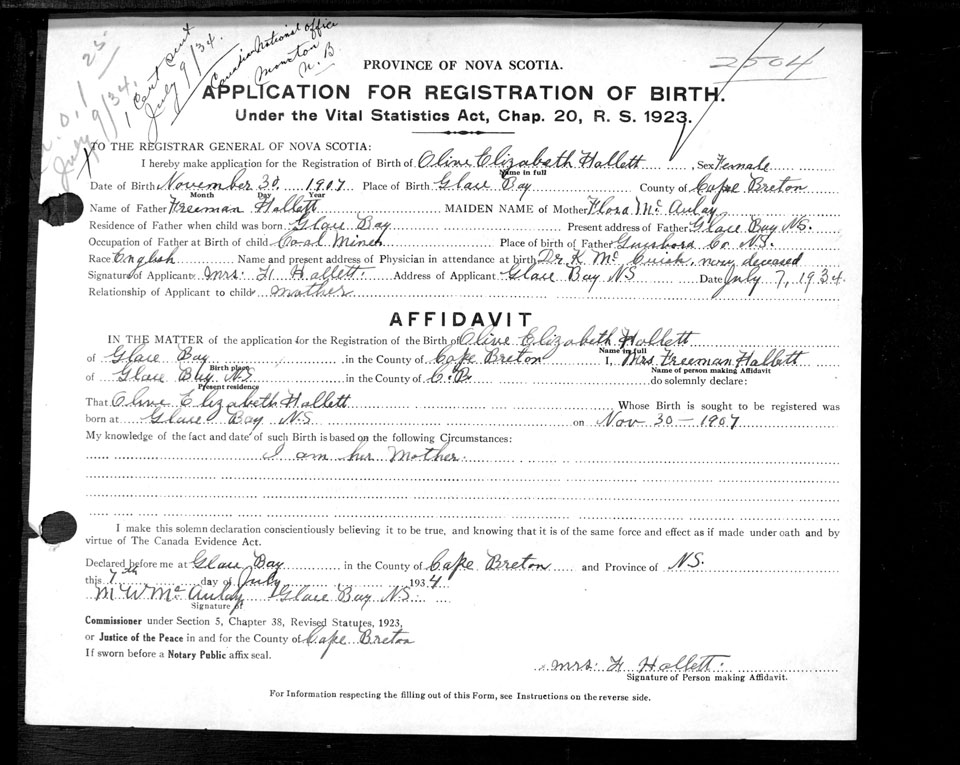 1 Cert sent
July 9/34.
Canadian National office
Moncton
N. B
July 9/34.
2504
PROVINCE OF NOVA SCOTIA.
APPLICATION FOR REGISTRATION OF BIRTH.
Under the Vital Statistics Act, Chap. 20, R. S. 1923.
TO THE REGISTRAR GENERAL OF NOVA SCOTIA:
I hereby make application for the Registration of Birth of Olive Elizabeth Hallett, Sex Female
Name in full
Date of Birth November 30 1907 Place of Birth Glace Bay County of Cape Breton
Month Day Year
Name of Father Freeman Hallett MAIDEN NAME of Mother Flora McAulay
Residence of Father when child was born Glace Bay Present address of Father Glace Bay N.S.
Occupation of Father at Birth of child Coal Miner Place of birth of Father Guysboro Co. N.S.
Race English Name and present address of Physician in attendance at birth Dr. K. Mc Cuish, now deceased
Signature of Applicant Mrs. F. Hallett. Address of Applicant Glace Bay NS Date July 7, 1934.
Relationship of Applicant to child mother
AFFIDAVIT
IN THE MATTER of the application for the Registration of the Birth of Olive Elizabeth Hallett
Name in full
of Glace Bay in the County of Cape Breton I, Mrs Freeman Hallett
Birth place Name of person making Affidavit
of Glace Bay N.S in the County of C.B. do solemnly declare:
Present residence
That Olive Elizabeth Hallett Whose Birth is sought to be registered was
born at Glace Bay N.S on Nov 30 - 1907
My knowledge of the fact and date of such Birth is based on the following Circumstances:
I am her Mother.
I make this solemn declaration conscientiously believing it to be true, and knowing that it is of the same force and effect as if made under oath and by
virtue of The Canada Evidence Act.
Declared before me at Glace Bay in the County of Cape Breton and Province of N.S.
this 7th day of July 1934
M W McAulay Glace Bay N.S.
Signature of
Commissioner under Section 5, Chapter 38, Revised Statutes, 1923,
or Justice of the Peace in and for the County of Cape Breton
If sworn before a Notary Public affix seal.
Mrs. F. Hallett.
Signature of Person making Affidavit.
For Information respecting the filling out of this Form, see Instructions on the reverse side.